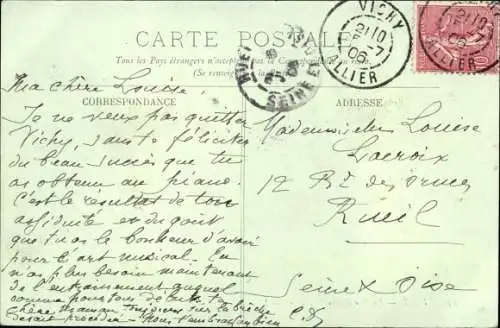 CARTE POSTALE
Tous les Pays étrangers n'acceptent pas la Correspondance au
(Se renseigner à la
CORRESPONDANCE
ADRESSE
VICHY
21 10
5 -7
06
ALLIER
RUEIL
SEINE ET OISE
10
Ma chère Louise,
Je ne veux pas quitter
Vichy, sans te féliciter
du beau succès que tu
as obtenu au piano.
c'est le résultat de ton
assiduité et du goût
que tu as le bonheur d'avoir
pour l'art musical. Tu
n'as plus besoin maintenant
de l'entrainement auquel
comme
chère maman, toujours sur la brèche
Nous t'embrassons bien
Mademoiselle Louise
Lacroix
12
Rueil
Seine & Oise